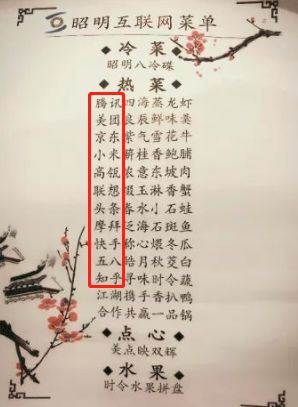 昭明互联网菜单
冷菜
昭明八冷碟
热菜
腾讯四海蒸龙虾
美团良辰鲜味羹
京东紫气雪花牛
小米桂香鲍脯
高瓴农意东坡肉
联想玉淋香蟹
头条春水小石蛙
摩拜泛海石斑鱼
快手称心煨冬瓜
五八皓月秋茭白
知乎寻味时令蔬
江湖携手香扒鸭
合作共赢一品锅
点心
美点映双辉
水果
时令水果拼盘